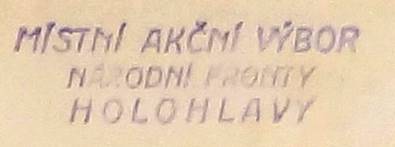 MÍSTNÍ AKČNÍ VÝBOR
NÁRODNÍ FRONTY
HOLOHLAVY